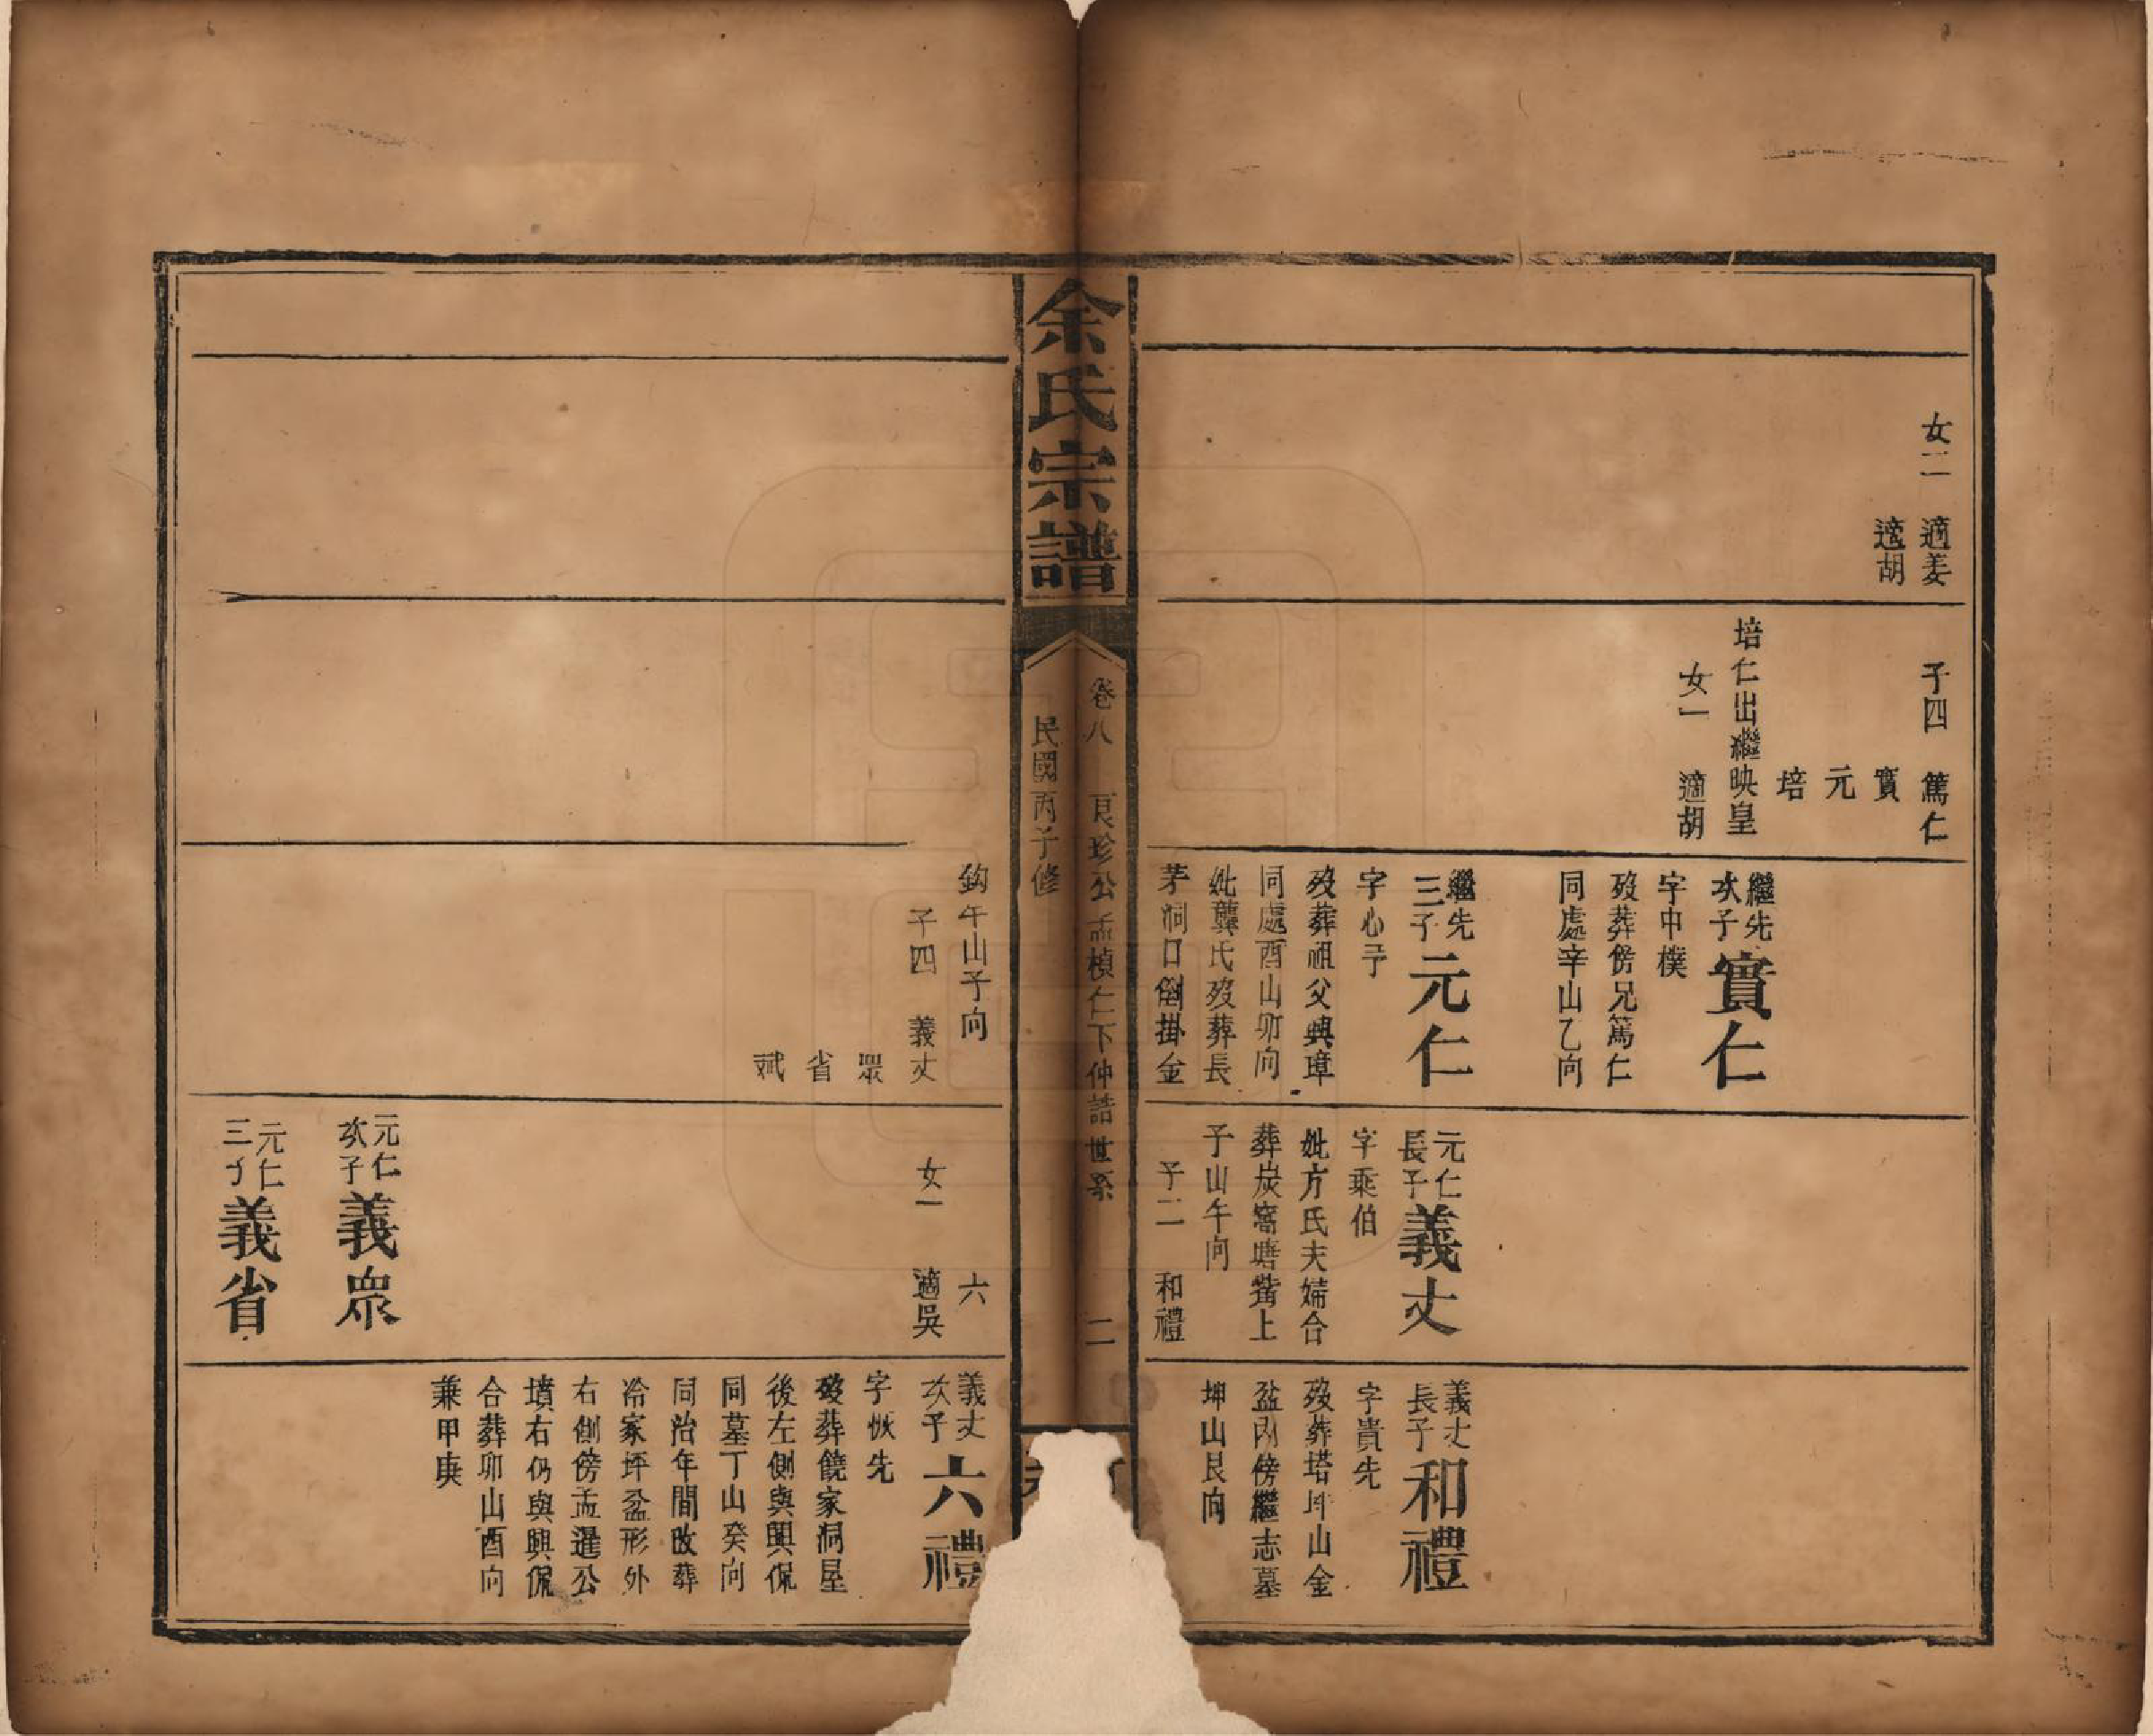 女二 適姜
適胡
子四 篤仁
實
元
培
培仁出繼映皇
女一 適胡
繼先
次子 實仁
字中樸
歿葬傍兄篤仁
同處辛山乙向
繼先
三子 元仁
字心予
歿葬祖父興璋
同處酉山卯向
妣龔氏歿葬長
茅洞口倒掛金
元仁
長子 義丈
字乘伯
妣方氏夫婦合
葬炭窩塘塝上
子山午向
子二 和禮
義丈
長子 和禮
字貴先
歿葬塔坪山金
盆內傍繼志墓
坤山艮向
余氏宗譜
卷八 艮珍公孟楨仁下仲誥世系 二
民國丙子修
鈎午山子向
子四 義丈
眾
省
斌
六
女一 適吳
元仁
次子 義眾
元仁
三子 義省
義丈
次子 六禮
字恢先
歿葬饒家洞屋
後左側與興侃
同墓丁山癸向
同治年間改葬
冷家坪盆形外
右側傍孟暹公
墳右仍與興侃
合葬卯山酉向
兼甲庚